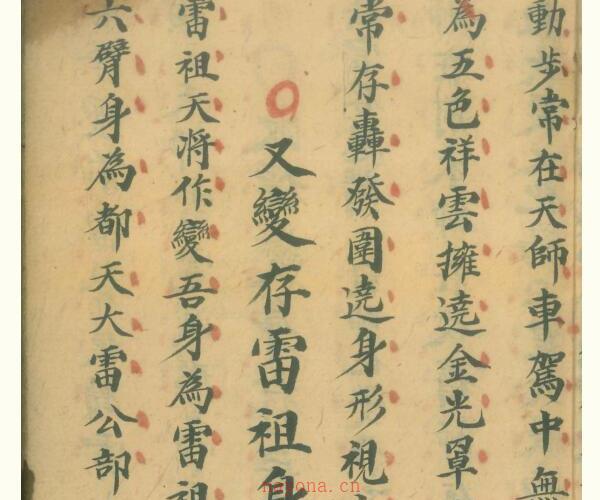 動步常在天師車駕中無
為五色祥雲擁遶金光罩
常存轟發圍遶身形視
又變存雷祖身
雷祖天將作變吾身為雷祖
六臂身為都天大雷公部
nayona.cn